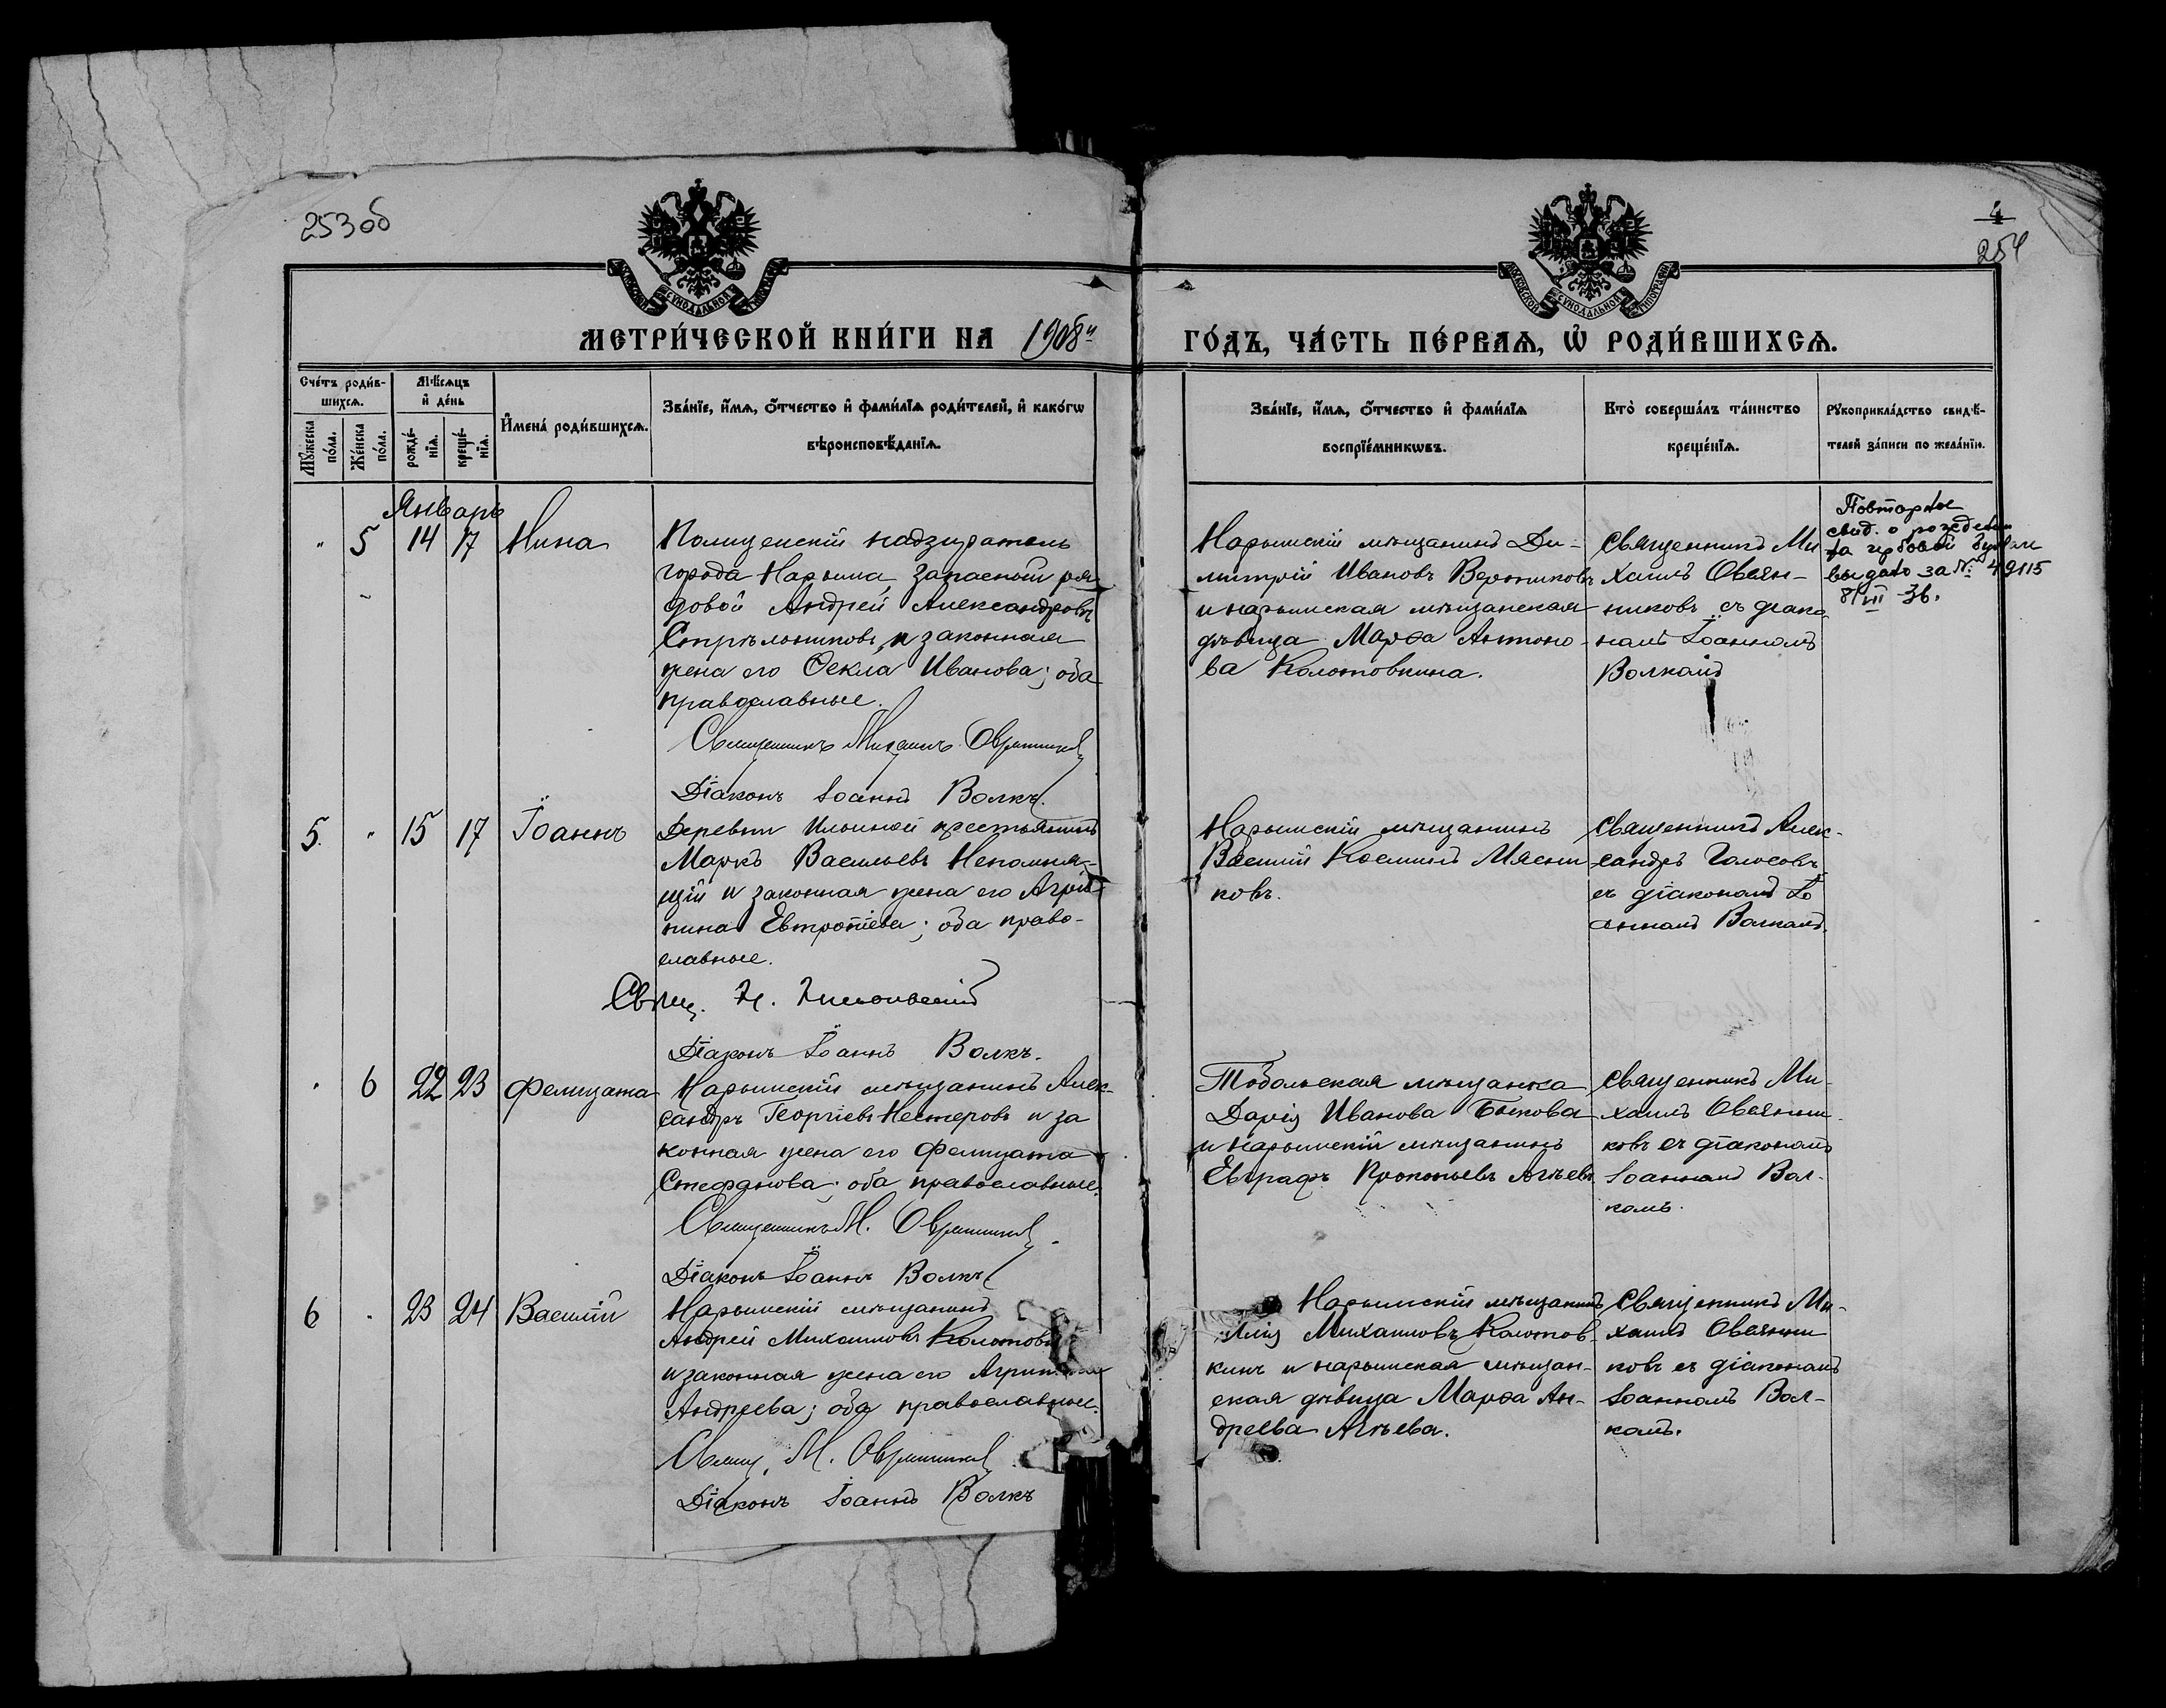 253об
4
254
МОСКОВСКОЙ СѴНОДАЛЬНОЙ ТИПОГРАФІИ
МОСКОВСКОЙ СѴНОДАЛЬНОЙ ТИПОГРАФІИ
МЕТРИ́ЧЕСКОЙ КНИ́ГИ НА 1908й ГО́ДЪ, ЧА́СТЬ ПЕ́РВАѦ, Ѡ҆ РОДИ́ВШИХСѦ.
Сче́тъ роди́в-
шихсѧ.
Мꙋ́жеска по́ла.
Же́нска по́ла.
Мѣ́сѧцъ
и҆ де́нь
рожде́-
нїѧ.
креще́-
нїѧ.
И҆мена̀ роди́вшихсѧ.
Зва́нїе, и҆́мѧ, ѻ҆́тчество и҆ фами́лїѧ роди́телей, и҆ како́гѡ
вѣроисповѣ́данїѧ.
Зва́нїе, и҆́мѧ, ѻ҆́тчество и҆ фами́лїѧ
воспрїе́мникѡвъ.
Кто̀ соверша́лъ та́инство
креще́нїѧ.
Рꙋкоприкла́дство свидѣ́-
телей за́писи по жела́нїю.
Январь
" 5 14 17 Нина
Полицейскій надзиратель
города Нарыма, запасный ря-
довой Андрей Александровъ
Стрѣльниковъ, и законная
жена его Ѳекла Иванова; оба
православные.
Священникъ Михаилъ Овсянниковъ
Діаконъ Іоаннъ Волкъ.
Нарымскій мѣщанинъ Ди-
митрій Ивановъ Веретниковъ
и нарымская мѣщанская
дѣвица Марѳа Антоно-
ва Колотовкина.
Священникъ Ми
хаилъ Овсян-
никовъ съ діако
номъ Іоанномъ
Волкомъ
Повторное
свид. о рождении
на гербовой бумаге
выдано за № 49115
8/VIII 36.
5. " 15 17 Іоаннъ
Деревни Ильиной крестьянинъ
Маркъ Васильевъ Непомня-
щій и законная жена его Агрип-
пина Евтропіева; оба право-
славные.
Свящ.
Діаконъ Іоаннъ Волкъ.
Нарымскій мѣщанинъ
Василій Косминъ Мясни
ковъ.
Священникъ Алек-
сандръ Голосовъ
съ діакономъ Іо
анномъ Волкомъ.
" 6 22 23 Фелицата
Нарымскій мѣщанинъ Алек-
сандръ Георгіевъ Нестеровъ и за
конная жена его Фелицата
Стефанова; оба православные.
Священникъ М. Овсянниковъ.
Діаконъ Іоаннъ Волкъ
Тобольская мѣщанка
Дарія Иванова Быкова
и нарымскій мѣщанинъ
Евграфъ Прокопьевъ Агѣевъ
Священникъ Ми-
хаилъ Овсянни-
ковъ съ діакономъ
Іоанномъ Вол-
комъ.
6 " 23 24 Василій
Нарымскій мѣщанинъ
Андрей Михаиловъ
и законная жена его
Андреева; оба православные.
Свящ. М. Овсянниковъ
Діаконъ Іоаннъ Волкъ
Нарымскій мѣщанинъ
Илія Михаиловъ Колотов-
кинъ и нарымская мѣщан-
ская дѣвица Марѳа Ан-
дреева Агѣева.
Священникъ Ми-
хаилъ Овсянни
ковъ съ діакономъ
Іоанномъ Вол-
комъ.